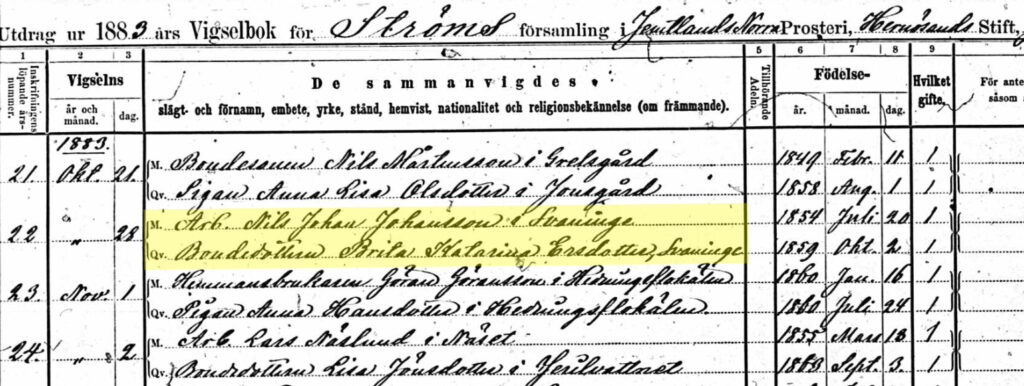 Utdrag ur 1883 års Vigselbok för Ströms församling i Jemtlands Norra Prosteri, Hernösands Stift,
1 2 3 4 5 6 7 8 9
Inskrifningens löpande års-nummer. Vigselns De sammanvigdes Tillhörande Adeln. Födelse- Hvilket gifte. För ante
år och månad. dag. slägt- och förnamn, embete, yrke, stånd, hemvist, nationalitet och religionsbekännelse (om främmande). år. månad. dag. såsom
1883.
21 Okt. 21 M. Bondesonen Nils Mårtensson i Grelsgård 1849 Febr. 11 1
Qv. Pigan Anna Lisa Olsdotter i Jonsgård 1858 Aug. 1 1
22 " 28 M. Arb. Nils Johan Johansson i Svaninge 1854 Juli 20 1
Qv. Bondedottern Brita Katarina Ersdotter, Svaninge 1859 Okt. 2 1
23 Nov. 1 M. Hemmansbrukaren Göran Göransson i 1860 Jan. 16 1
Qv. Pigan Anna Hansdotter i 1860 Juli 24 1
24. " 2 M. Arb. Lars Näslund i Näset 1855 Mars 13 1
Qv. Bondedottern Lisa Jönsdotter i Sept. 3 1